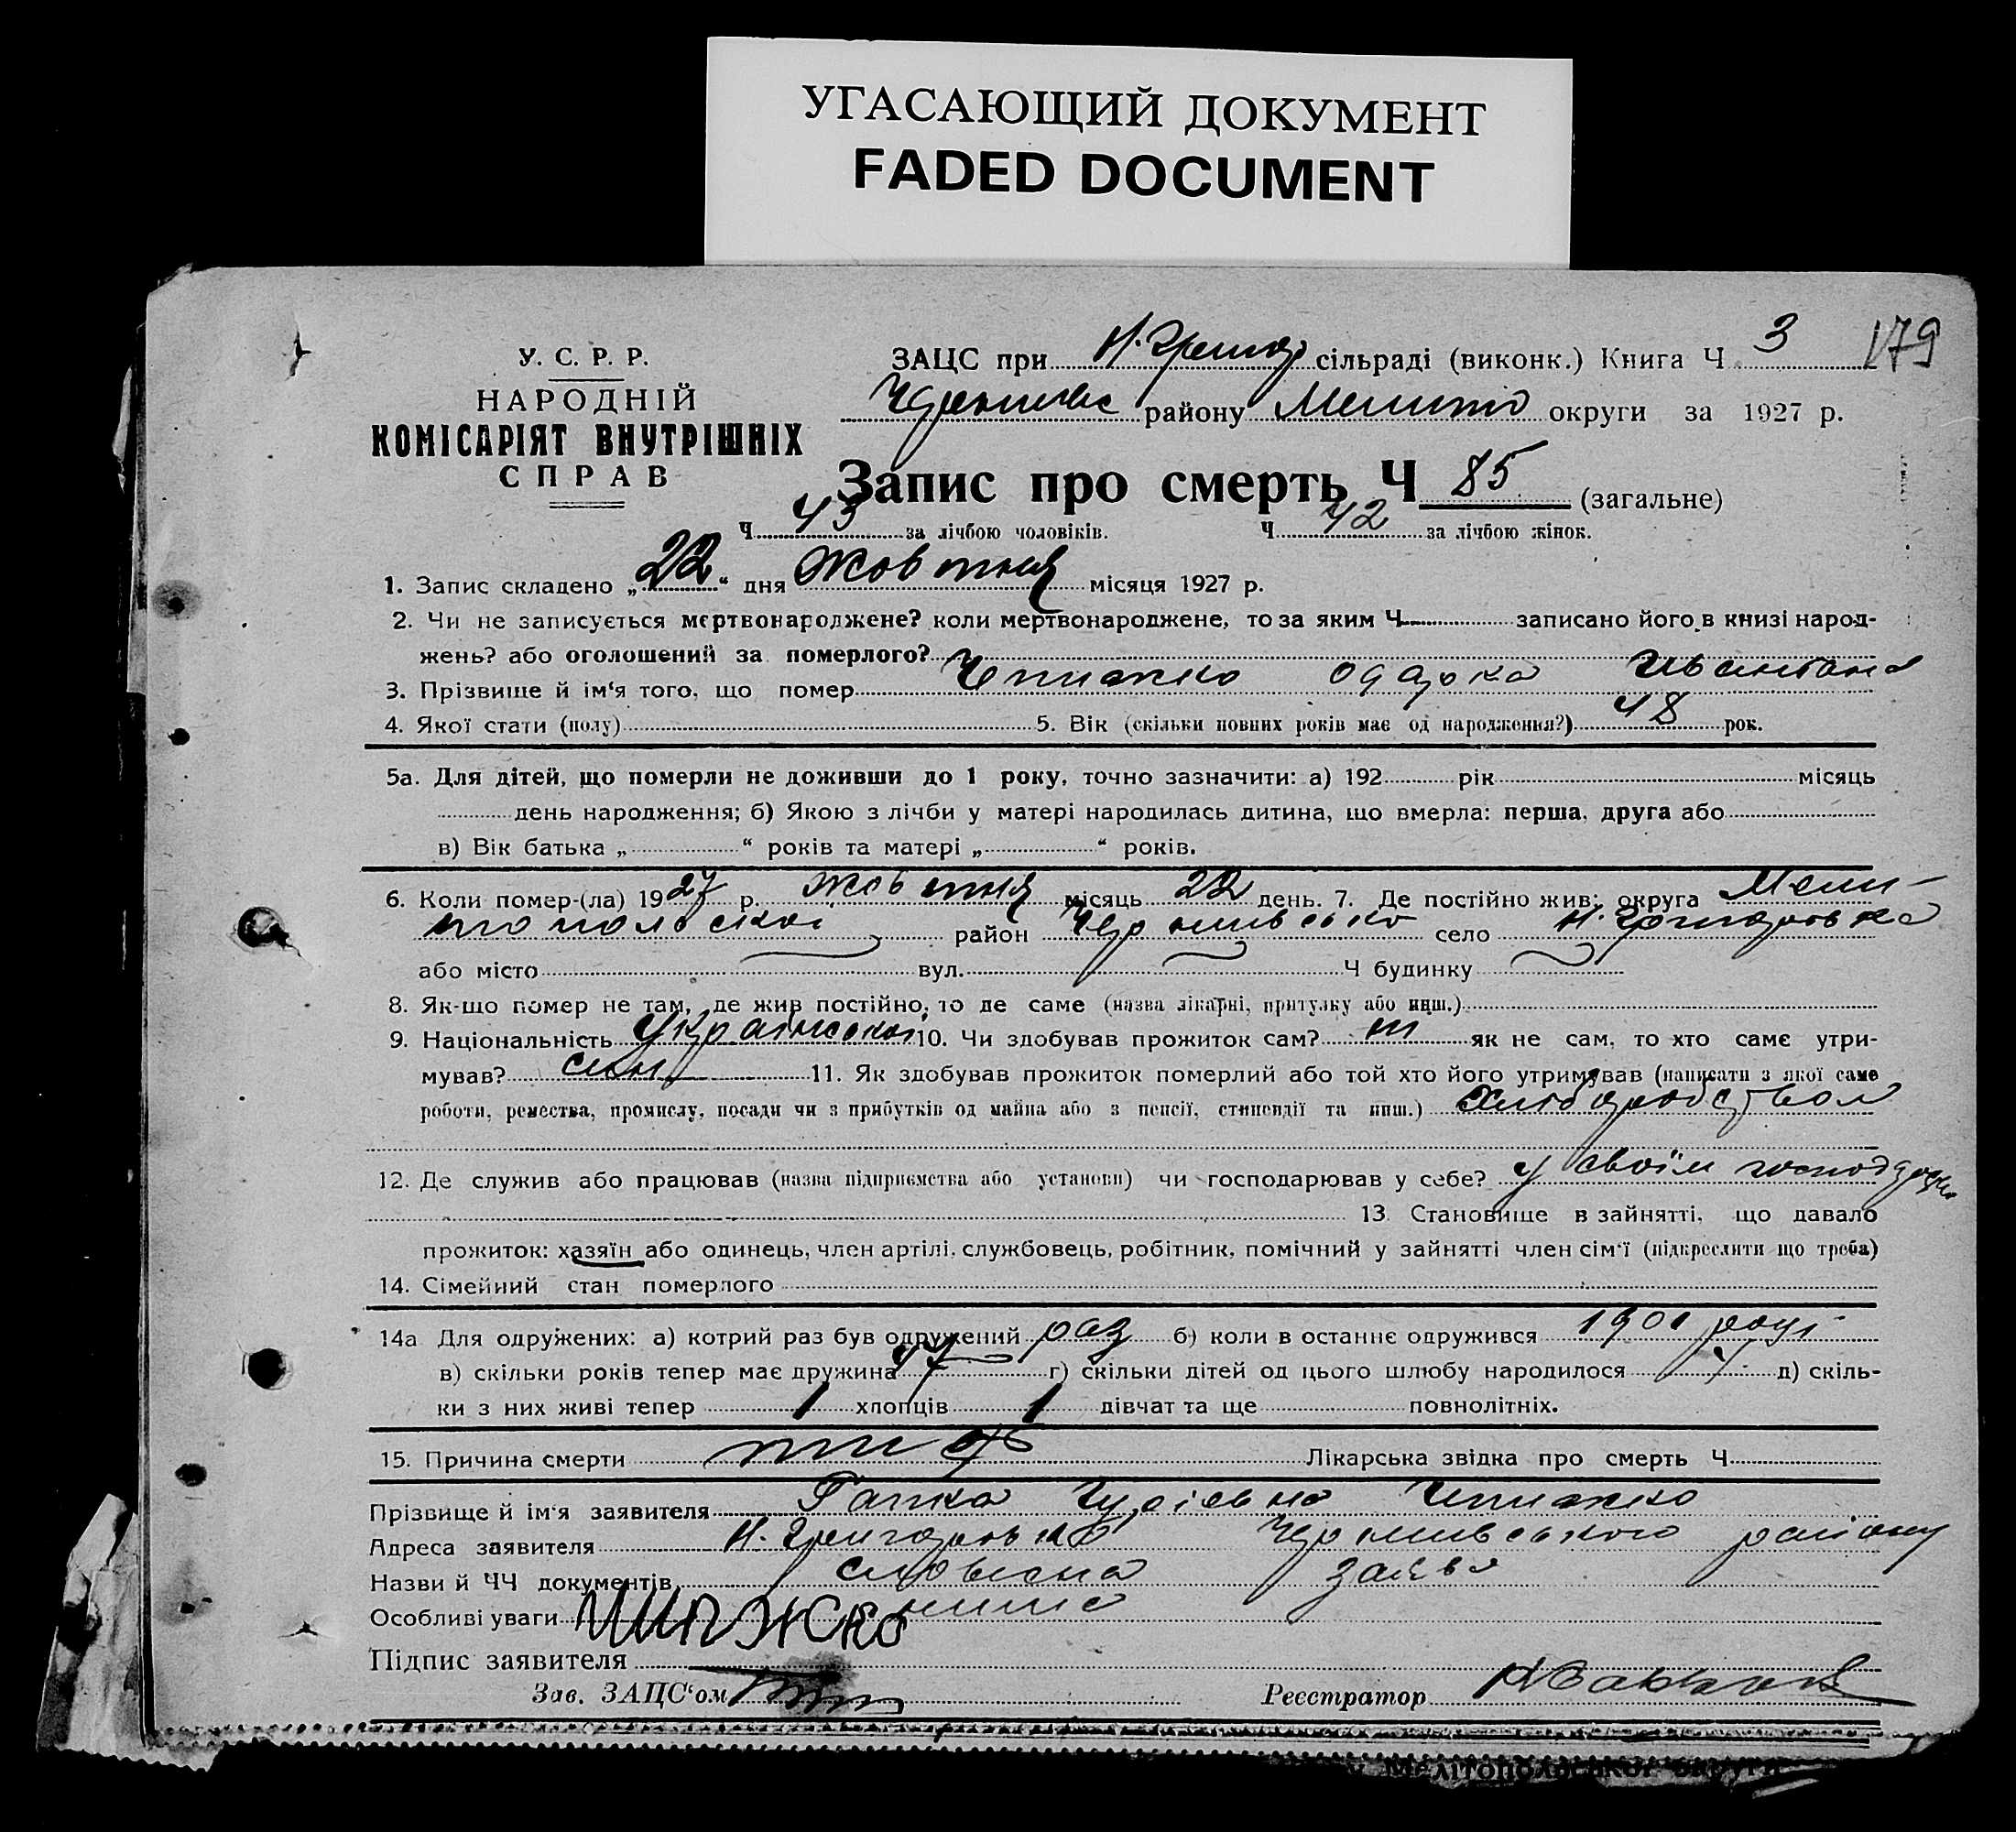 УГАСАЮЩИЙ ДОКУМЕНТ
FADED DOCUMENT
У. С. Р. Р.
НАРОДНІЙ
КОМІСАРІЯТ ВНУТРІШНІХ
СПРАВ
ЗАЦС при сільраді (виконк.) Книга Ч 3 179
району Мелито округи за 1927 р.
Запис про смерть Ч 85 (загальне)
Ч 43 за лічбою чоловіків. Ч 42 за лічбою жінок.
1. Запис складено „22“ дня Жовтня місяця 1927 р.
2. Чи не записується мертвонароджене? коли мертвонароджене, то за яким Ч записано його в книзі народ-
жень? або оголошений за померлого?
3. Прізвище й ім‘я того, що помер Одарка
4. Якої стати (полу) 5. Вік (скільки повних років має од народження?) 48 рок.
5а. Для дітей, що померли не доживши до 1 року, точно зазначити: а) 192 рік місяць
день народження; б) Якою з лічби у матері народилась дитина, що вмерла: перша, друга або
в) Вік батька „ “ років та матері „ “ років.
6. Коли помер-(ла) 1927 р. Жовтня місяць 22 день. 7. Де постійно жив: округа Мели-
топольської район село
або місто вул. Ч будинку
8. Як-що помер не там, де жив постійно, то де саме (назва лікарні, притулку або инш.)
9. Національність Українська 10. Чи здобував прожиток сам? як не сам, то хто саме утри-
мував? 11. Як здобував прожиток померлий або той хто його утримував (написати з якої саме
роботи, ремества, промислу, посади чи з прибутків од майна або з пенсії, стипендії та инш.)
12. Де служив або працював (назва підприємства або установи) чи господарював у себе? у своїм
13. Становище в зайнятті, що давало
прожиток: хазяїн або одинець, член артілі, службовець, робітник, помічний у зайнятті член сім‘ї (підкреслити що треба)
14. Сімейний стан померлого
14а Для одружених: а) котрий раз був одружений раз б) коли в останнє одружився 1901 році
в) скільки років тепер має дружина 47 г) скільки дітей од цього шлюбу народилося д) скіль-
ки з них живі тепер 1 хлопців 1 дівчат та ще повнолітніх.
15. Причина смерти тиф Лікарська звідка про смерть Ч
Прізвище й ім‘я заявителя Гапка
Адреса заявителя району
Назви й ЧЧ документів словесна заява
Особливі уваги
Підпис заявителя
Зав. ЗАЦС‘ом Реєстратор
Мелітопольської округи